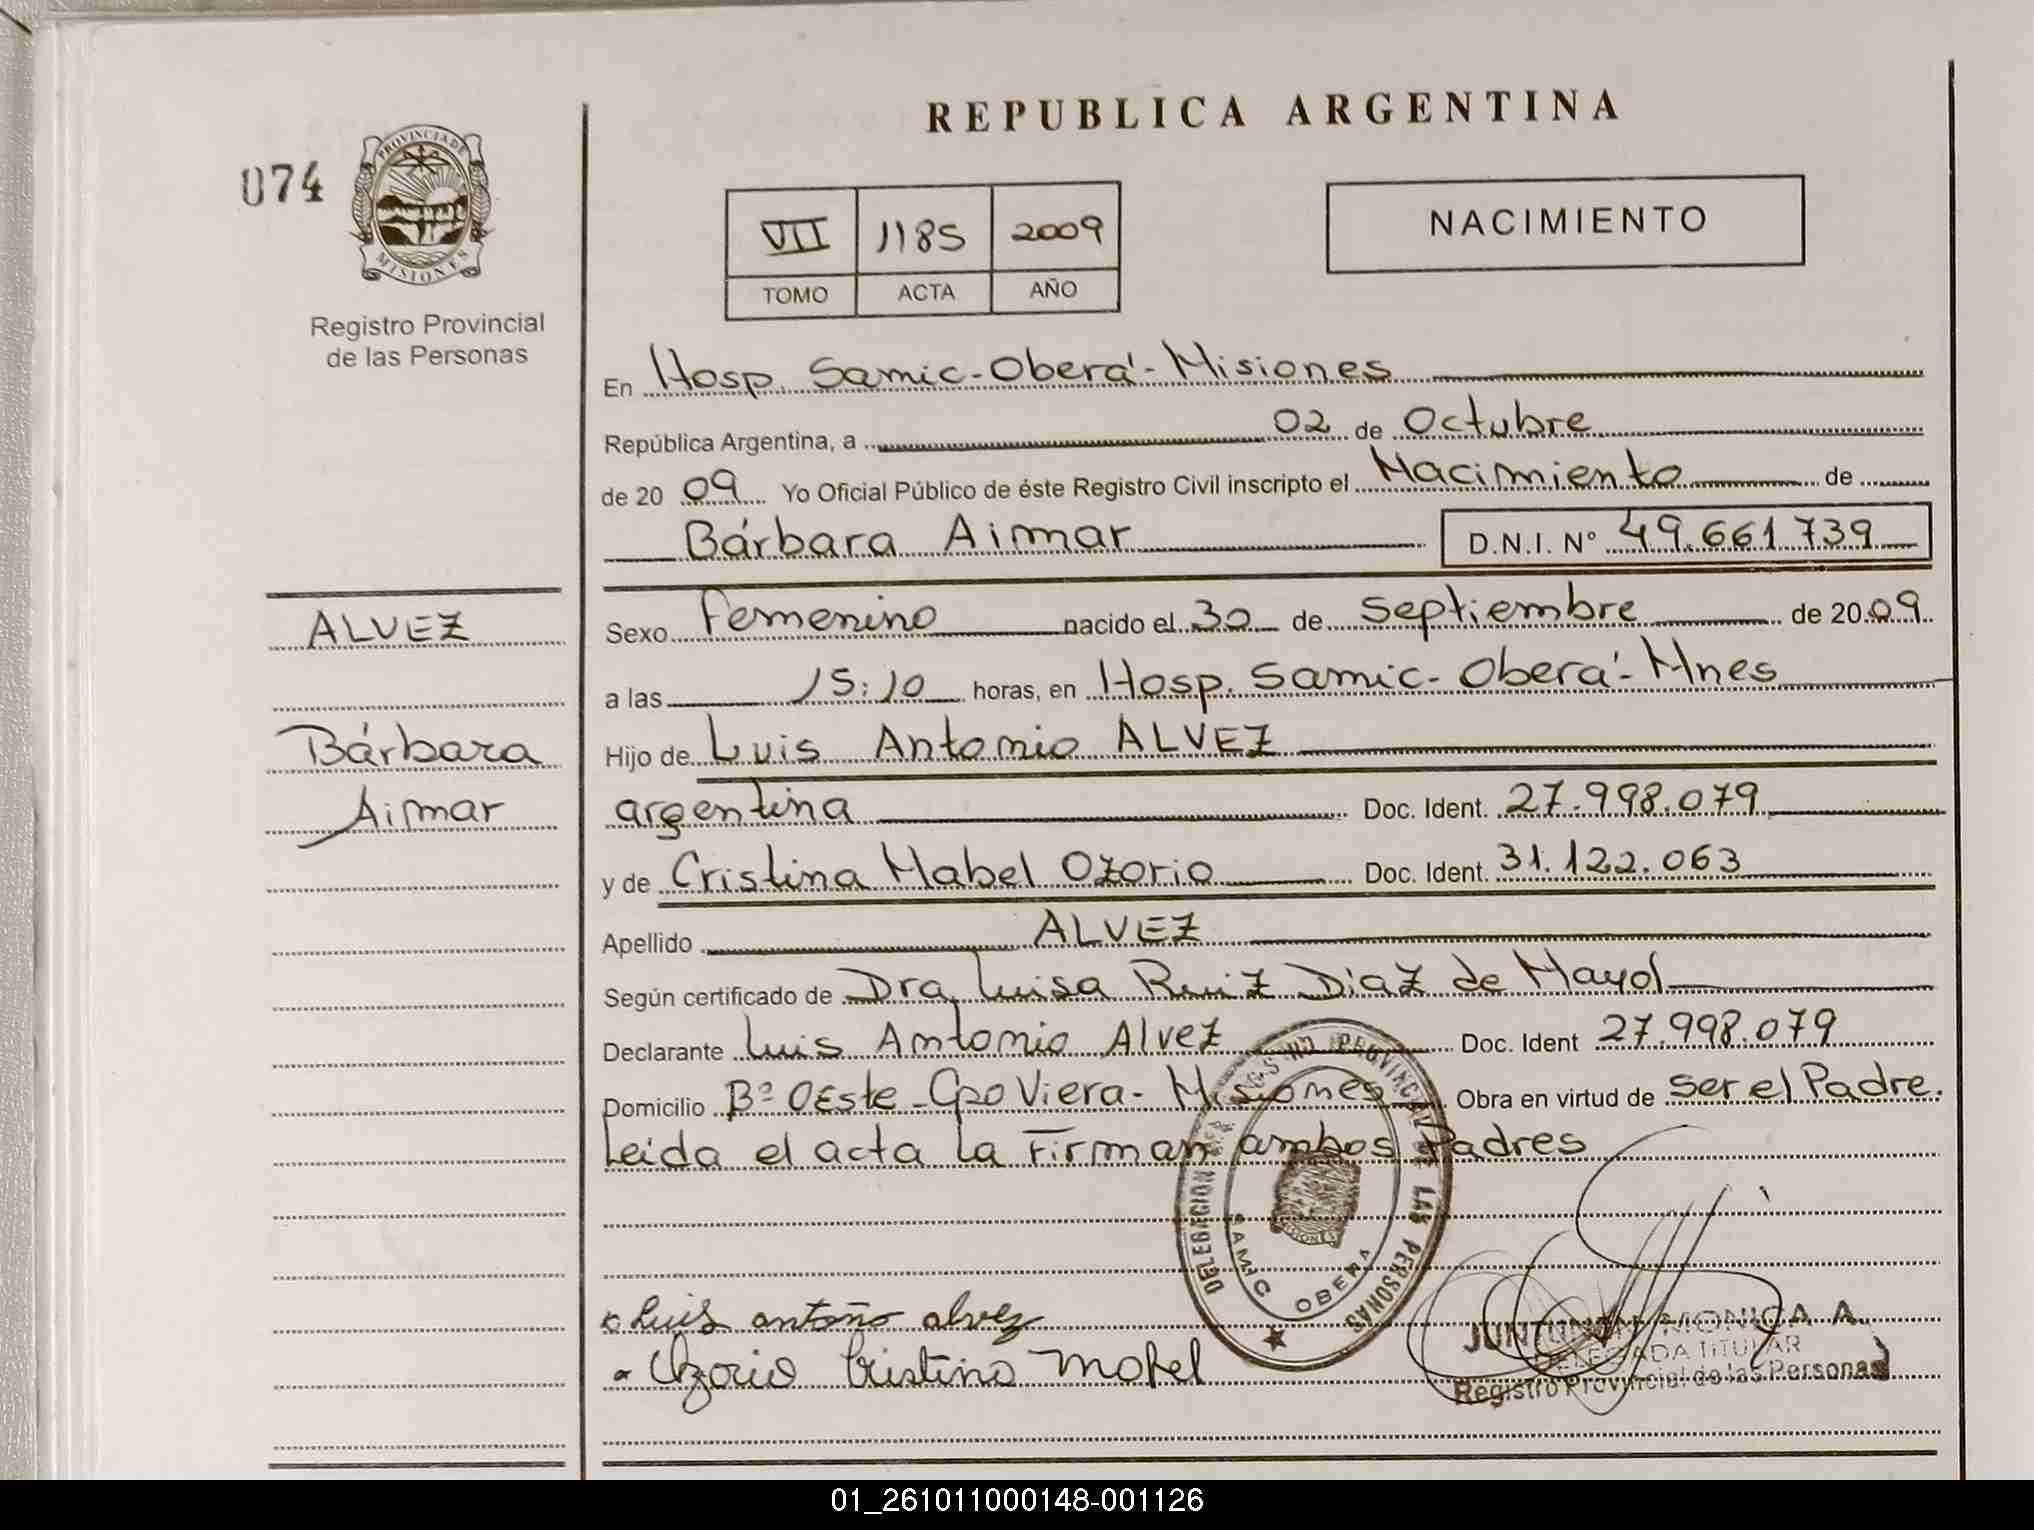 REPUBLICA ARGENTINA
074
PROVINCIA DE
MISIONES
Registro Provincial
de las Personas
VII 1185 2009
TOMO ACTA AÑO
NACIMIENTO
En Hosp. Samic-Oberá-Misiones
República Argentina, a 02 de Octubre
de 20 09 Yo Oficial Público de éste Registro Civil inscripto el Nacimiento de
Bárbara Aimar D.N.I. N° 49.661.739
ALVEZ
Bárbara
Aimar
Sexo Femenino nacido el 30 de Septiembre de 2009
a las 15:10 horas, en Hosp. Samic-Oberá-Mnes
Hijo de Luis Antonio ALVEZ
argentina Doc. Ident. 27.998.079
y de Cristina Mabel Ozorio Doc. Ident. 31.122.063
Apellido ALVEZ
Según certificado de Dra. Luisa Ruiz Diaz de Mayol
Declarante Luis Antonio Alvez Doc. Ident 27.998.079
Domicilio Bº OEste-Cpo Viera-Misiones Obra en virtud de Ser el Padre.
Leida el acta la Firman ambos Padres
DELEGACION PROVINCIAL DE LAS PERSONAS
SAMIC OBERA
Luis antoño alvez
Ozorio Cristina Mabel
MONICA A.
DELEGADA TITULAR
Registro Provincial de las Personas
01_261011000148-001126